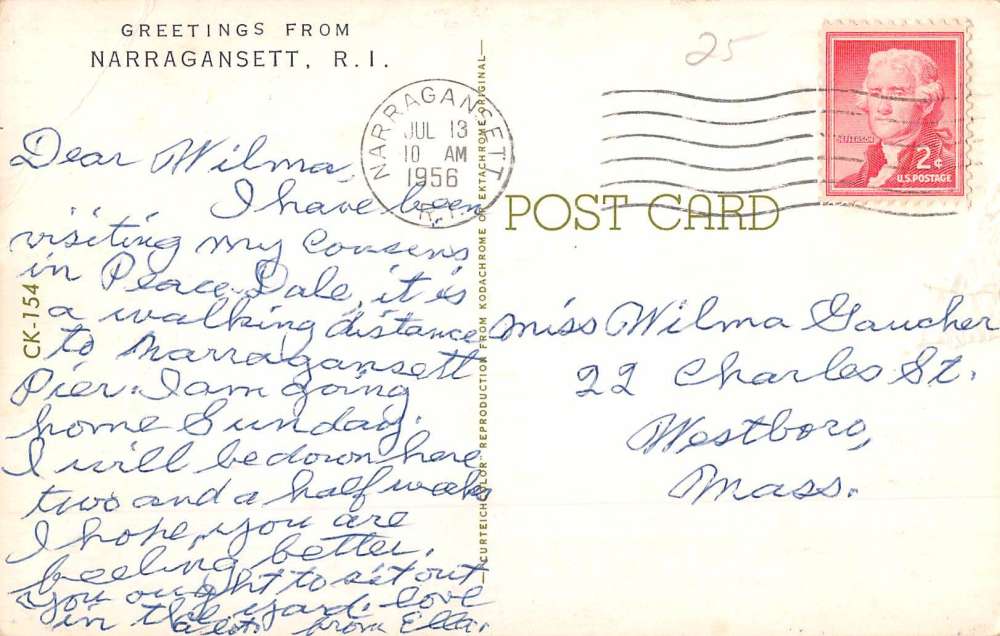 GREETINGS FROM
NARRAGANSETT, R.I.
Dear Wilma,
I have been
visiting my Cousens
in Peace Dale, it is
a walking distance
to Narragansett
Pier. I am going
home Sunday.
I will be down here
two and a half weeks
I hope, you are
feeling better.
You ought to sit out
in the yard. love
a lot. from Ella.
CK-154
CURTEICHCOLOR® REPRODUCTION FROM KODACHROME OR EKTACHROME ORIGINAL
NARRAGANSETT
JUL 13
10 AM
1956
R.I.
25
JEFFERSON
2¢
U.S. POSTAGE
POST CARD
Miss Wilma Gaucher
22 Charles St.
Westboro,
Mass.